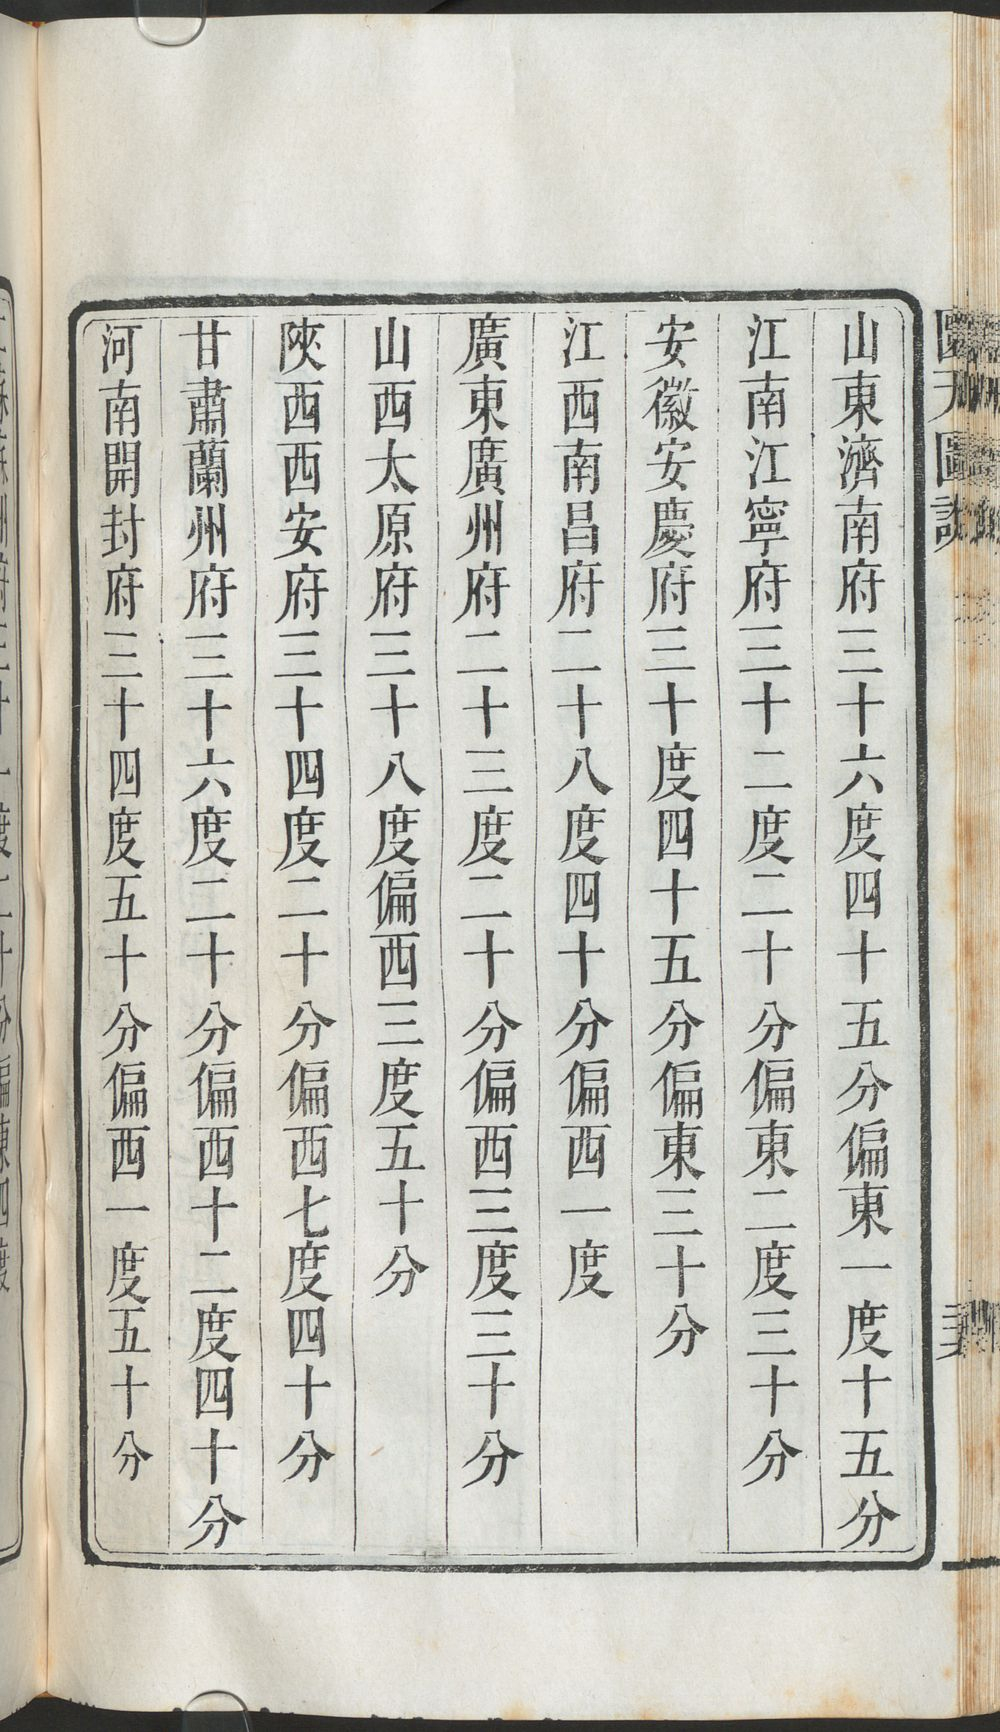 山東濟南府三十六度四十五分偏東一度十五分
江南江寧府三十二度二十分偏東二度三十分
安徽安慶府三十度四十五分偏東三十分
江西南昌府二十八度四十分偏西一度
廣東廣州府二十三度二十分偏西三度三十分
山西太原府三十八度偏西三度五十分
陝西西安府三十四度二十分偏西七度四十分
甘肅蘭州府三十六度二十分偏西十二度四十分
河南開封府三十四度五十分偏西一度五十分